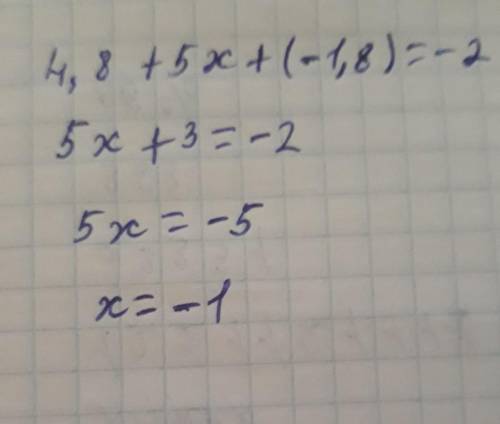 4,8 +5x+(-1,8)=-2
5x+3=-2
5x=-5
x=-1